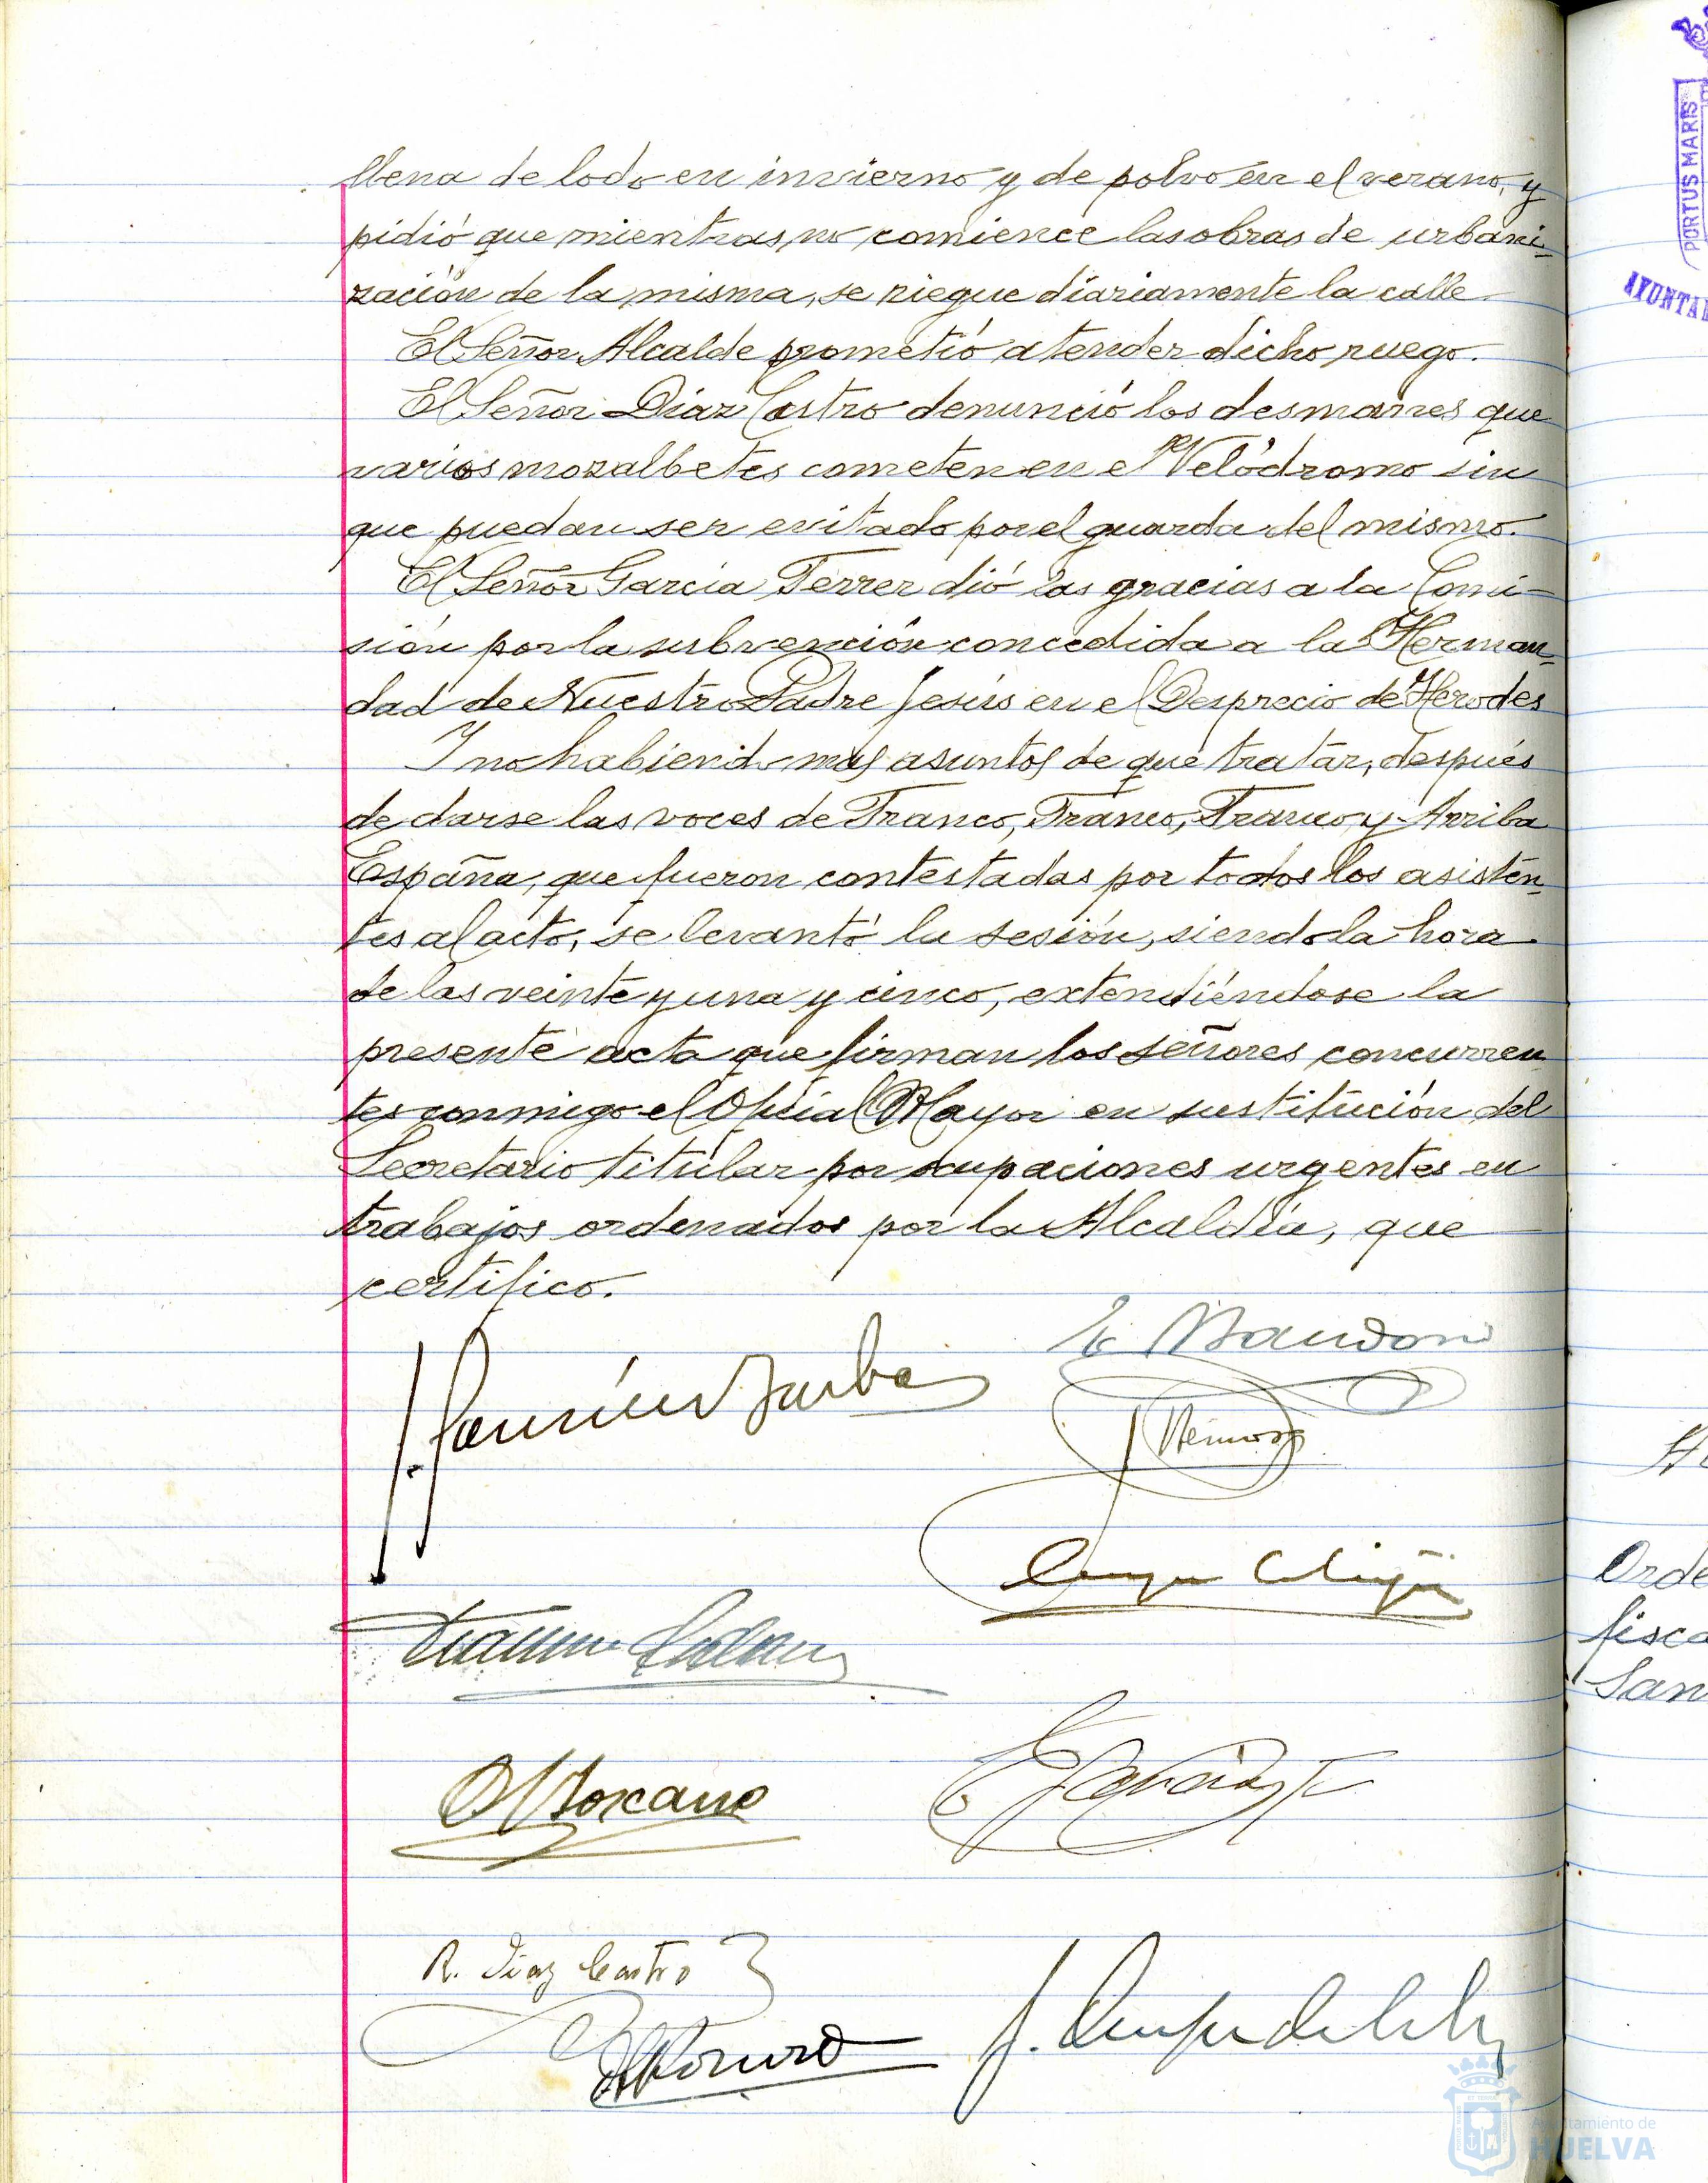 llena de lodo en invierno y de polvo en el verano, y
pidió que mientras no comience las obras de urbani-
zación de la misma, se riegue diariamente la calle.
El Señor Alcalde prometió atender dicho ruego.
El Señor Díaz Castro denunció los desmanes que
varios mozalbetes cometen en el Velódromo sin
que puedan ser evitado por el guarda del mismo.
El Señor García Ferrer dió las gracias a la Comi-
sión por la subvención concedida a la Herman-
dad de Nuestro Padre Jesús en el Desprecio de Herodes
Y no habiendo mas asuntos de que tratar, después
de darse las voces de Franco, Franco, Franco y Arriba
España, que fueron contestadas por todos los asisten-
tes al acto, se levantó la sesión, siendo la hora
de las veinte y una y cinco, extendiéndose la
presente acta que firman los señores concurren-
tes conmigo el Oficial Mayor en sustitución del
Secretario titular por ocupaciones urgentes en
trabajos ordenados por la Alcaldía, que
certifico.
R. Diaz Castro
PORTUS MARIS
AYUNTA
Orde
fisca
San
Ayuntamiento de
HUELVA